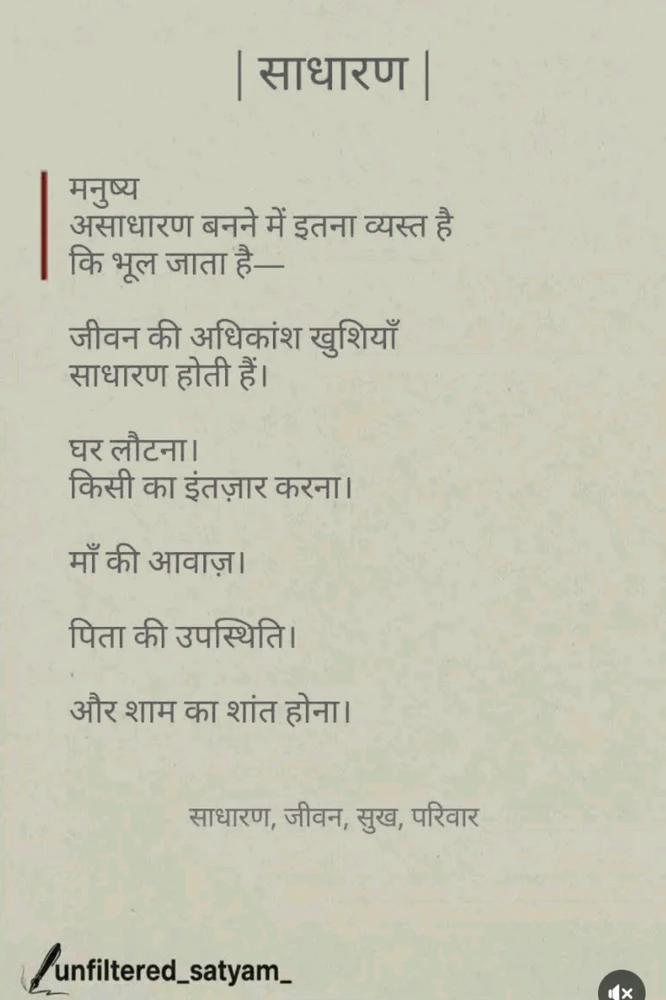 | साधारण |
मनुष्य
असाधारण बनने में इतना व्यस्त है
कि भूल जाता है—
जीवन की अधिकांश खुशियाँ
साधारण होती हैं।
घर लौटना।
किसी का इंतज़ार करना।
माँ की आवाज़।
पिता की उपस्थिति।
और शाम का शांत होना।
साधारण, जीवन, सुख, परिवार
unfiltered_satyam_